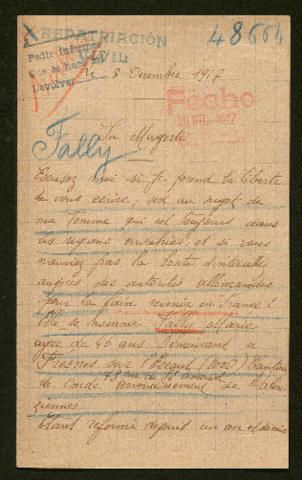 REPATRIACIÓN
48664
Pedir informes
que se hace
Devolver
le 8 Decembre 1917
Fecho
Fally
Sa Magesté
Excusez moi si je prend la liberté
de vous ecrire; c'est au sujet de
ma femme qui est toujours dans
les regions envahies, et si vous
n'auriez pas la bonté d'intervenir
auprès des autorités allemandes
pour la faire revenir en France
Elle se nomme Fally Maria
agée de 46 ans Demeurant a
Fresnes sur l'Escaut (Nord) Canton
43 rue de St amand
de Condé arrondissement de Valen
ciennes
Etant reformé depuis un an et demi